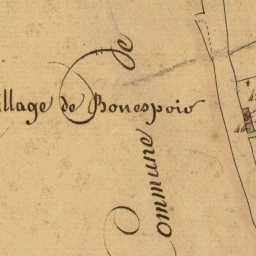 illage de Bonespoir
Commune de